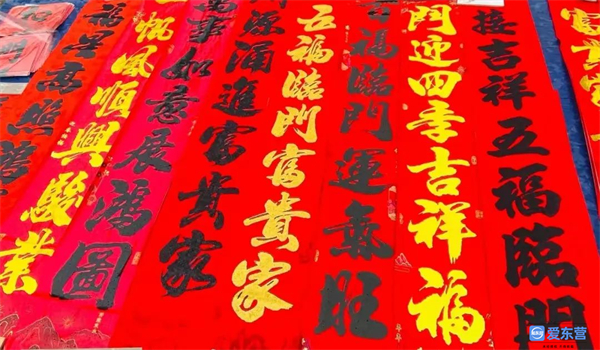 富貴
接吉祥五福臨門
門迎四季吉祥福
福臨門運氣旺
五福臨門富貴家
源涌進富貴家
萬事如意展鴻圖
帆風順興駿業
福星高照
爱东营